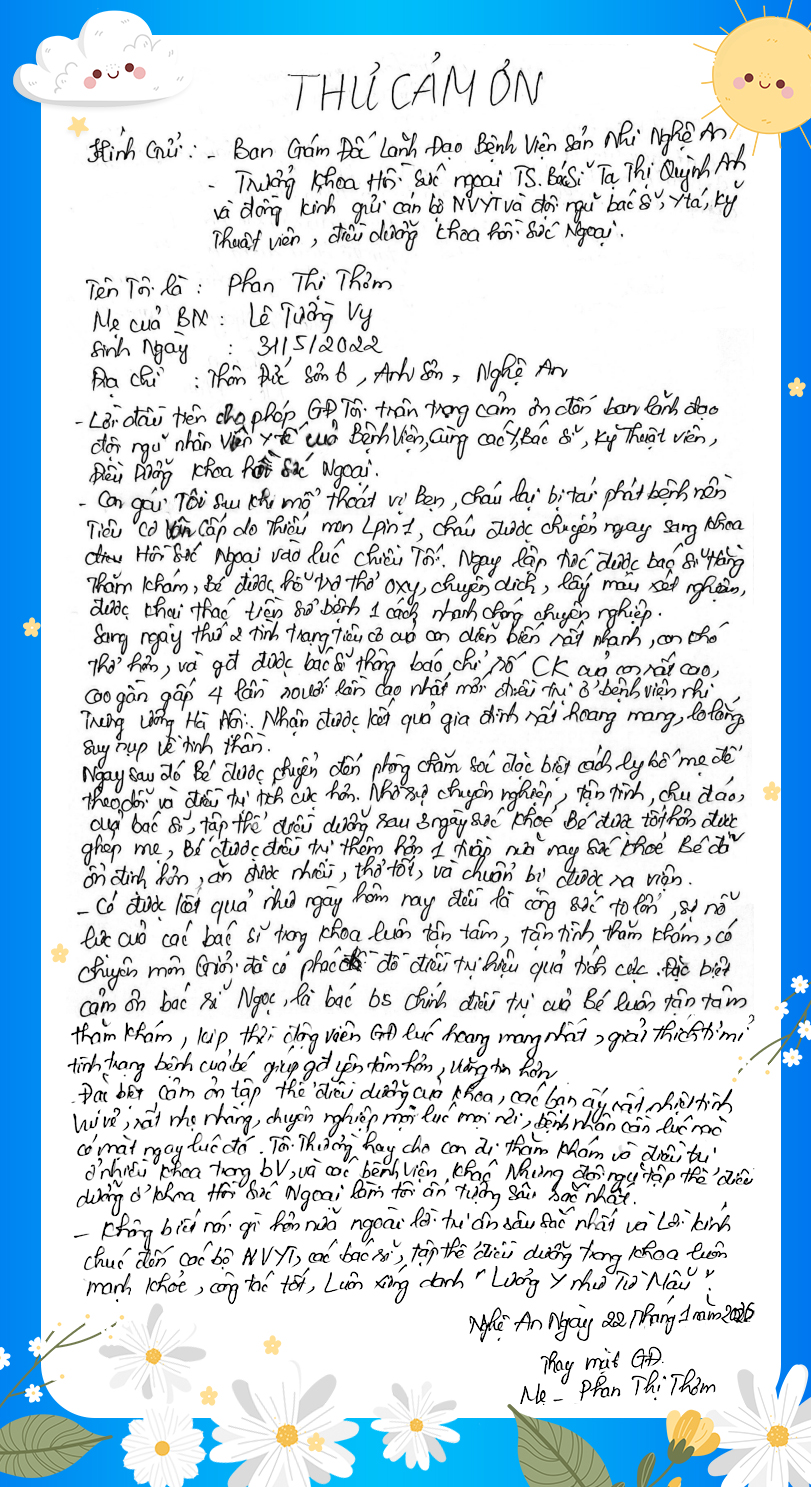 THƯ CẢM ƠN
Kính Gửi : - Ban Giám Đốc Lãnh Đạo Bệnh Viện Sản Nhi Nghệ An
- Trưởng khoa Hồi Sức ngoại TS. Bác Sĩ Tạ Thị Quỳnh Anh
và đồng kính gửi cán bộ NVYT và đội ngũ bác sĩ, y tá, Kỹ
Thuật viên, điều dưỡng khoa hồi Sức Ngoại.
Tên Tôi là : Phan Thị Thơm
Mẹ cuả BN : Lê Tường Vy
Sinh Ngày : 31/5/2022
Địa chỉ : Thôn Đức Sơn 6, Anh Sơn, Nghệ An
- Lời đầu tiên cho phép GĐ Tôi trân trọng cảm ơn đến ban lãnh đạo
đội ngũ nhân Viên y tế cuả Bệnh Viện, Cùng các Bác Sĩ, Kỹ Thuật viên,
Điều Dưỡng khoa hồi Sức Ngoại.
- Con gái Tôi sau khi mổ thoát vị Bẹn, cháu lại bị tái phát bệnh nền
Tiêu Cơ Vân Cấp do Thiếu men Lpin1, cháu được chuyển ngay sang khoa
Hồi Sức Ngoại vào lúc chiều Tối. Ngay lập tức được bác sĩ Hằng
Thăm khám, Bé được hỗ trợ thở oxy, chuyền dịch, lấy máu xét nghiệm,
được khai thác tiền sử bệnh 1 cách nhanh chóng chuyên nghiệp.
Sang ngày thứ 2 tình trạng tiêu cơ cuả con diễn biến rất nhanh, con khó
thở hơn, và gđ được bác sĩ thông báo chỉ số CK cuả con rất cao,
cao gần gấp 4 lần rưỡi lần cao nhất mới điều trị ở bệnh viện nhi
Trung ương Hà Nội. Nhận được kết quả gia đình rất hoang mang, lo lắng
suy sụp về tinh thần.
Ngay sau đó Bé được chuyển đến phòng chăm sóc đặc biệt cách ly bố mẹ để
theo dõi và điều trị tích cực hơn. Nhờ sự chuyên nghiệp, tận tình, chu đáo,
cuả bác sĩ, tập thể điều dưỡng sau 3 ngày sức khoẻ Bé được tốt hơn được
ghép mẹ, Bé được điều trị thêm hơn 1 tuần nữa nay sức khoẻ Bé đã
ổn định hơn, ăn được nhiều, thở tốt, và chuẩn bị được ra viện.
- Có được kết quả như ngày hôm nay đều là công sức to lớn, sự nỗ
lực cuả các bác sĩ trong khoa luôn tận tâm, tận tình thăm khám, có
chuyên môn Giỏi đã có phác đồ điều trị hiệu quả tích cực. Đặc biệt
cảm ơn bác sĩ Ngọc, là bác bs chính điều trị cuả Bé luôn tận tâm
thăm khám, kịp thời động viên GĐ lúc hoang mang nhất, giải thích tỉ mỉ
tình trạng bệnh cuả bé giúp gđ yên tâm hơn, vững tin hơn
. Đặc biệt cảm ơn tập thể điều dưỡng cuả khoa, các bạn ấy rất nhiệt tình
vui vẻ, rất nhẹ nhàng, chuyên nghiệp mọi lúc mọi nơi, bệnh nhân cần lúc nào
có mặt ngay lúc đó. Tôi Thường hay cho con đi thăm khám và điều trị
ở nhiều khoa trong bV, và các bệnh Viện khác Nhưng đội ngũ tập thể điều
dưỡng ở khoa Hồi Sức Ngoại làm tôi ấn tượng sâu sắc nhất.
- Không biết nói gì hơn nữa ngoài lời tri ân sâu sắc nhất và Lời kính
chúc đến các bộ NVYT, các bác sĩ, tập thể điều dưỡng trong khoa luôn
mạnh khoẻ, công tác tốt, Luôn xứng danh "Lương Y như Từ Mẫu".
Nghệ An Ngày 22 Tháng 1 năm 2026
Thay mặt GĐ.
Mẹ - Phan Thị Thơm